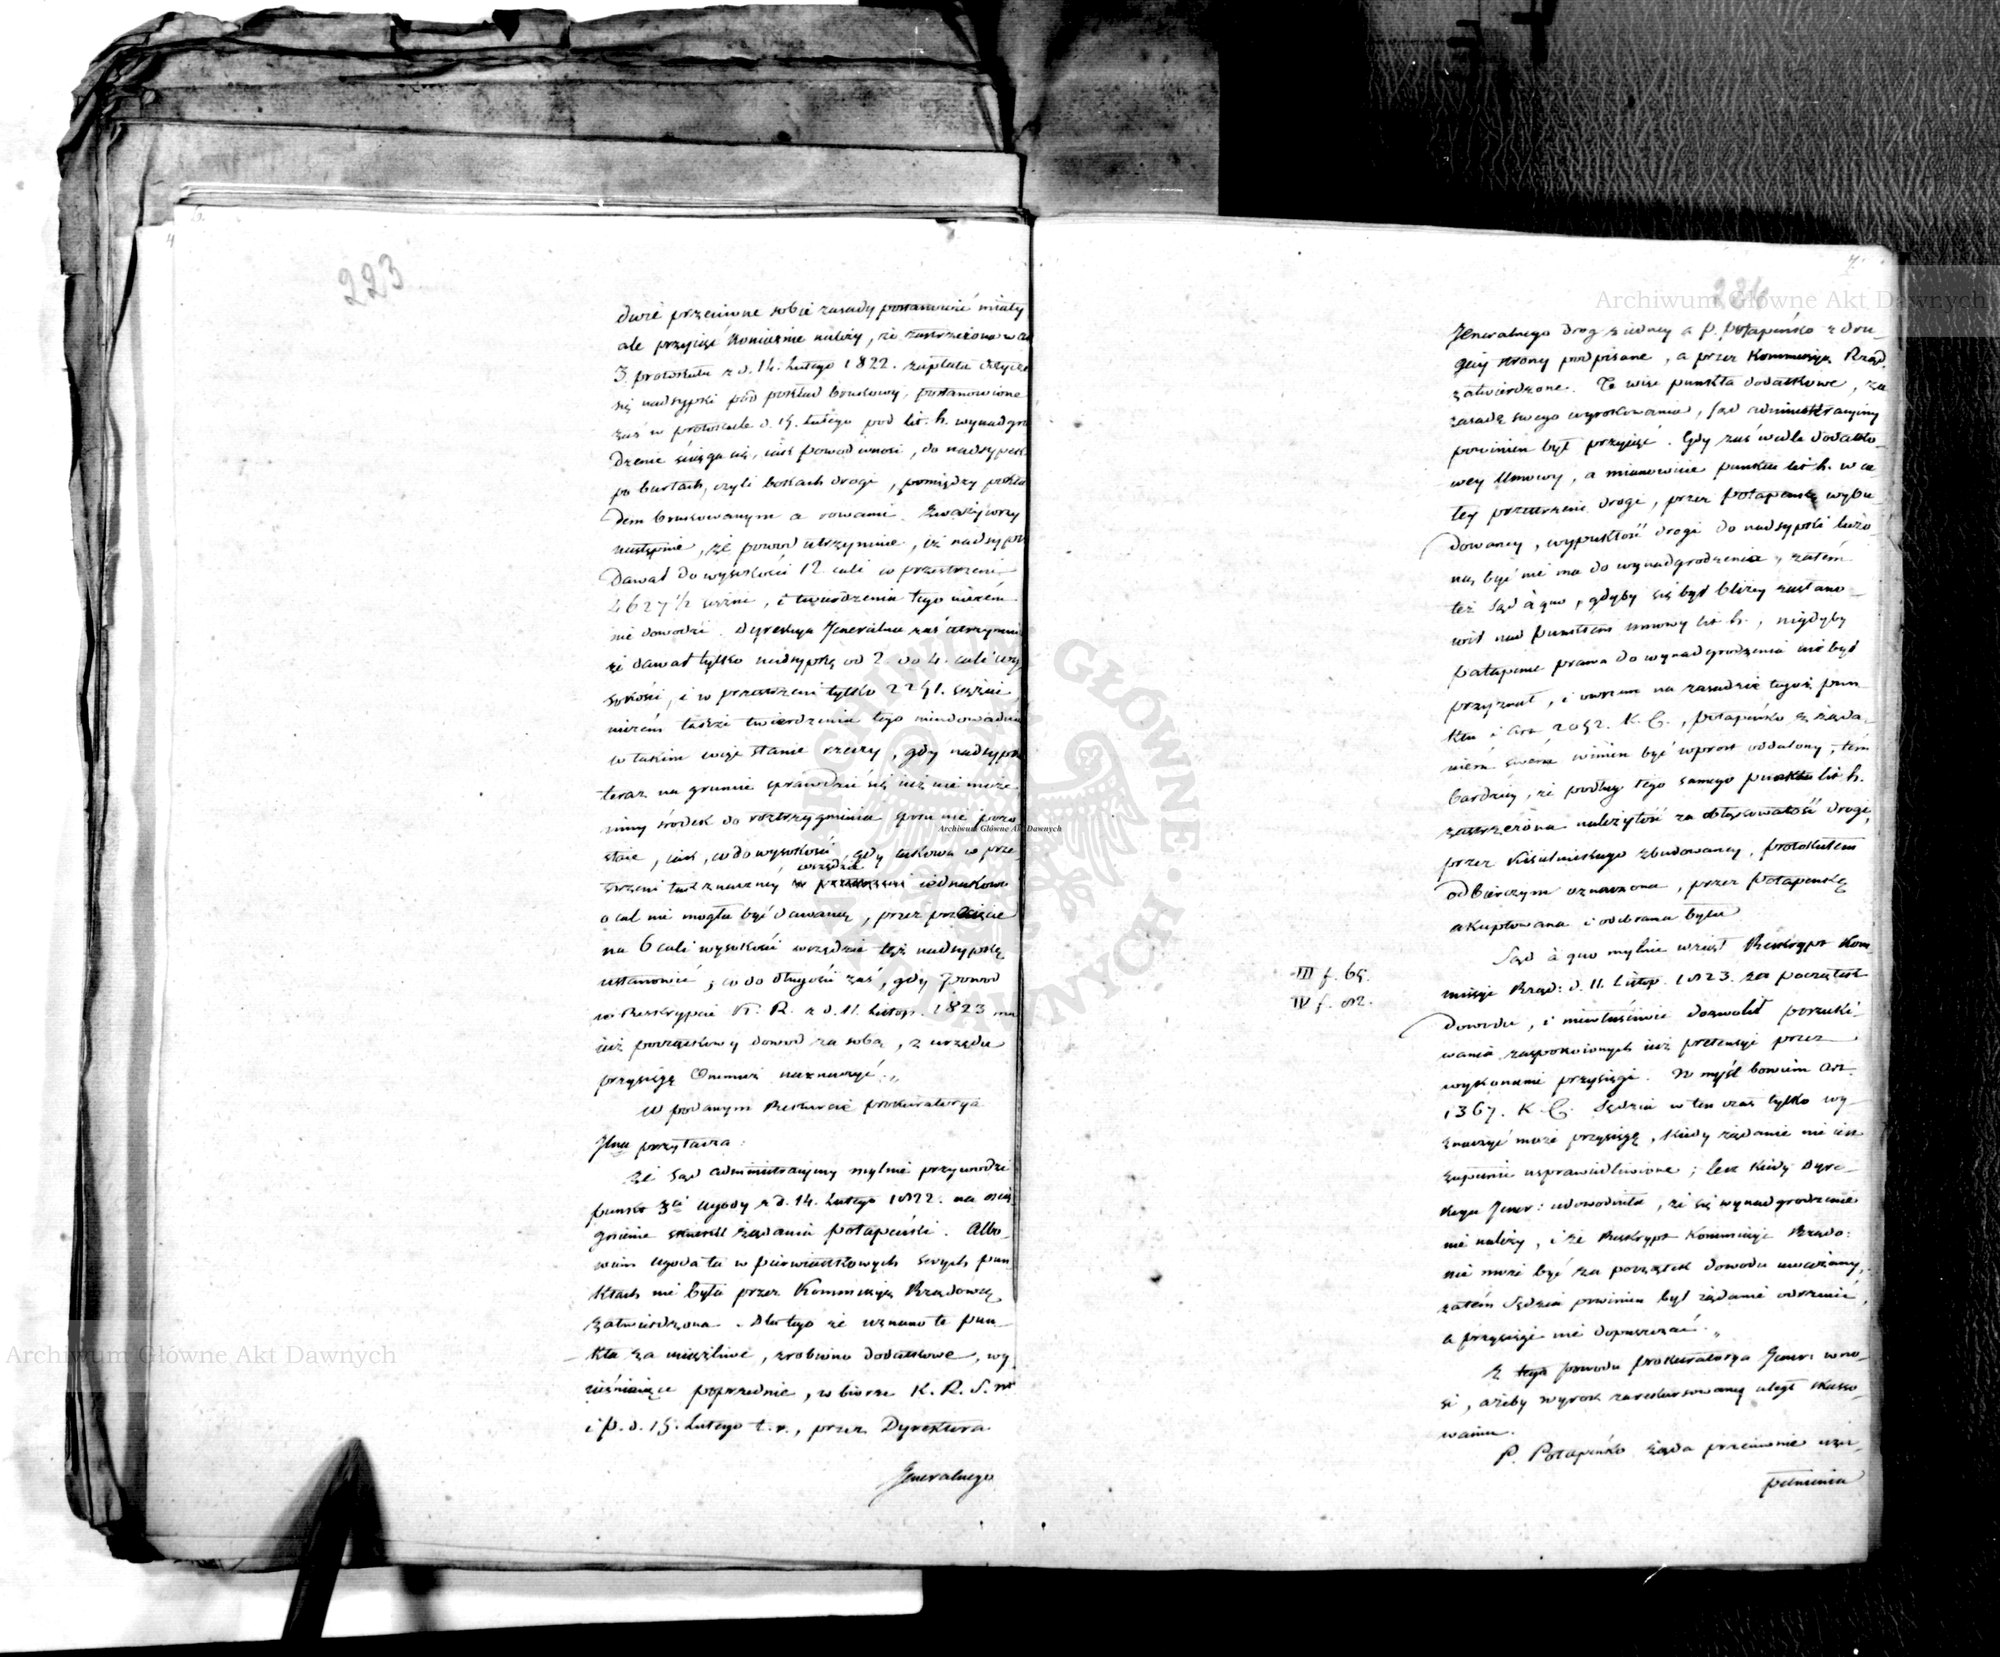 6.
223
dwie przeciwne sobie zasady postanowić miały
ale przyjąć koniecznie należy, że zastrzeżona w art
3 protokułu z d. 14. Lutego 1822. zapłata ściąga
się nadsypki pod pokład brukowy, postanowione
zaś w protokule d. 15. Lutego pod lit. h. wynadgro
dzenie ściąga się, jak powod wnosi, do nadsypek
po burtach, czyli bokach drogi, pomiędzy pokła
dem brukowanym a rowami. Zważywszy
następnie, że powod utrzymuie, iż nadsypkę
dawał do wysokości 12 cali w przestrzeni
4627 1/2 sążni, i twierdzenia tego niczem
nie dowodzi. Dyrekcya Jeneralna zaś utrzymuie
że dawał tylko nadsypkę od 2. do 4. cali wy
sokości, i w przestrzeni tylko 2251. sążni
niczem także twierdzenia tego nieudowadnia
w takim więc stanie rzeczy, gdy nadsypka
teraz na gruncie sprawdzić się już nie może
inny środek do rozstrzygnienia sporu nie pozo
staie, jak, co do wysokości, gdy takowa w prze
wszędzie
strzeni tak znaczney w przestrzeni jednakowo
o cal nie mogła być dawaną, przez przecięcie
na 6 cali wysokości wszędzie tęż nadsypkę
ustanowić; co do długości zaś, gdy powod
w Reskrypcie K. R. z d. 11. Listop. 1823 ma
już początkowy dowod za sobą, z urzędu
przysięgę Onemuż naznaczyć."
W podanym Rekursie prokuratorya
Jlna przytacza:
Że Sąd administracyiny mylnie przywodzi
punkt 3ci ugody z d. 14. Lutego 1822. na osią
gnienie żądania Potapeński. Albo-
wiem ugoda ta w pierwiastkowych swych pun
ktach nie była przez Kommissyą Rządową
zatwierdzona. Dla tego że uznano te pun-
kta za uciążliwe, zrobiono dodatkowe, wy
ieśniaiące poprzednie, w biorze K. R. S. W
i P. d. 15. Lutego t. r., przez Dyrektora
Jeneralnego
7.
224
Jeneralnego drog z iedney a P. Potapeńko z dru-
giey strony podpisane, a przez Kommissyą Rząd.
zatwierdzone. Te więc punkta dodatkowe, za
zasadę swego wyrokowania, Sąd administracyiny
powinien był przyjąć. Gdy zaś wedle dodatko-
wey Umowy, a mianowicie punktu lit h. w ca
łey przestrzeni drogi, przez Potapeńkę wybu
dowaney, wypukłość drogi do nadsypki liczo
ną być nie ma do wynadgrodzenia, zatem
też Sąd à quo, gdyby się był bliżey zastano-
wił nad punktem umowy lit h., nigdyby
Potapence prawa do wynadgrodzenia nie był
przyznał, i owszem na zasadzie tegoż pun
ktu i Art. 2052. K. C., Potapeńko z żąda-
niem swem winien być wprost oddalony, tem
bardziey, że podług tego samego punktu lit h.
zastrzeżona należytość za drogi,
przez Kisielnickiego zbudowaney, protokułem
odbierczym oznaczona, przez Potapeńkę
akceptowana i odebrana była
Sąd à quo mylnie wziął Reskrypt Kom
III f. 65.
missyi Rząd: d. 11. Listop. 1823. za początek
IV f. 82.
dowodu, i niewłaściwie dozwolił poszuki-
wania zaspokoionych już pretensyi przez
wykonanie przysięgi. W myśl bowiem Art
1367. K. C. Sędzia w ten czas tylko wy-
znaczyć może przysięgę, kiedy żądanie nie iest
zupełnie usprawiedliwione; lecz kiedy Dyre-
kcya Jener: udowodniła, że się wynadgrodzenie
nie należy, i że Reskrypt Kommissyi Rządo:
nie może być za początek dowodu uważany,
zatem Sędzia powinien był żądanie odrzucić,
a przysięgi nie dopuszczać."
Z tego powodu prokuratorya Jener: wno-
si, ażeby wyrok zarekursowany uległ skasso-
waniu.
P. Potapeńko żąda przeciwnie uzu-
pełnienia
Archiwum Główne Akt Dawnych
Archiwum Główne Akt Dawnych
Archiwum Główne Akt Dawnych
ARCHIWUM GŁÓWNE · AKT DAWNYCH ·